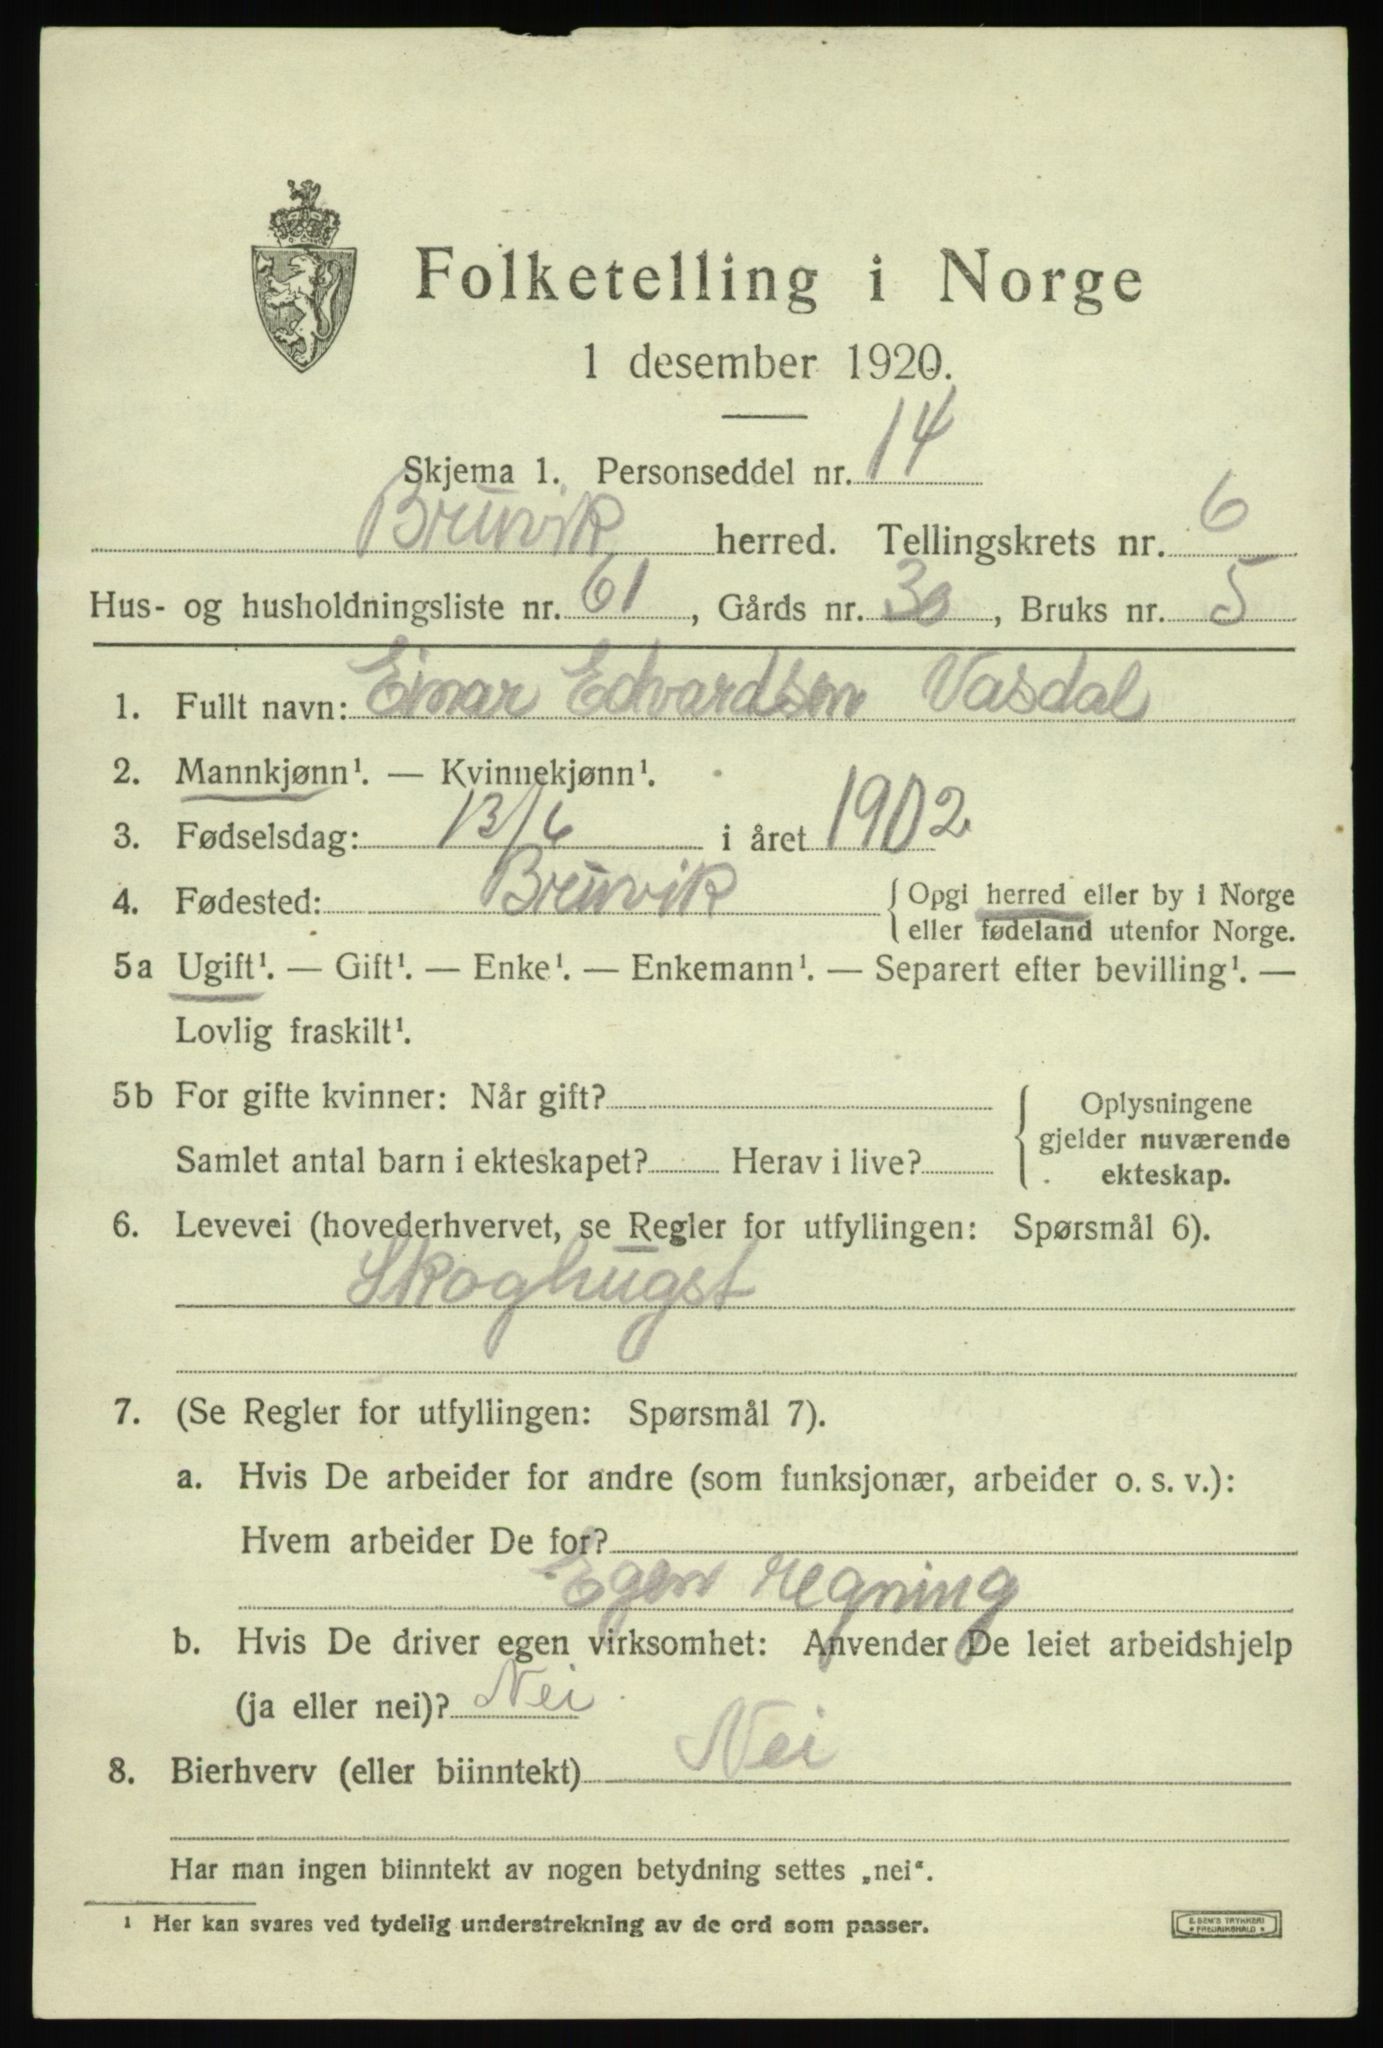 Folketelling i Norge
1 desember 1920.
Skjema 1. Personseddel nr. 14
Bruvik herred. Tellingskrets nr. 6
Hus- og husholdningsliste nr. 61, Gårds nr. 30, Bruks nr. 5
1. Fullt navn: Einar Edvardsen Vasdal
2. Mannkjønn¹. — Kvinnekjønn¹.
3. Fødselsdag: 13/6 i året 1902
4. Fødested: Bruvik { Opgi herred eller by i Norge
eller fødeland utenfor Norge.
5a Ugift¹. — Gift¹. — Enke¹. — Enkemann¹. — Separert efter bevilling¹. —
Lovlig fraskilt¹.
5b For gifte kvinner: Når gift? { Oplysningene
gjelder nuværende
Samlet antal barn i ekteskapet? Herav i live? ekteskap.
6. Levevei (hovederhvervet, se Regler for utfyllingen: Spørsmål 6).
Skoghugst
7. (Se Regler for utfyllingen: Spørsmål 7).
a. Hvis De arbeider for andre (som funksjonær, arbeider o. s. v.):
Hvem arbeider De for?
Egen regning
b. Hvis De driver egen virksomhet: Anvender De leiet arbeidshjelp
(ja eller nei)? Nei
8. Bierhverv (eller biinntekt) Nei
Har man ingen biinntekt av nogen betydning settes „nei“.
¹ Her kan svares ved tydelig understrekning av de ord som passer.
E. SEM'S TRYKKERI
FREDRIKSHALD